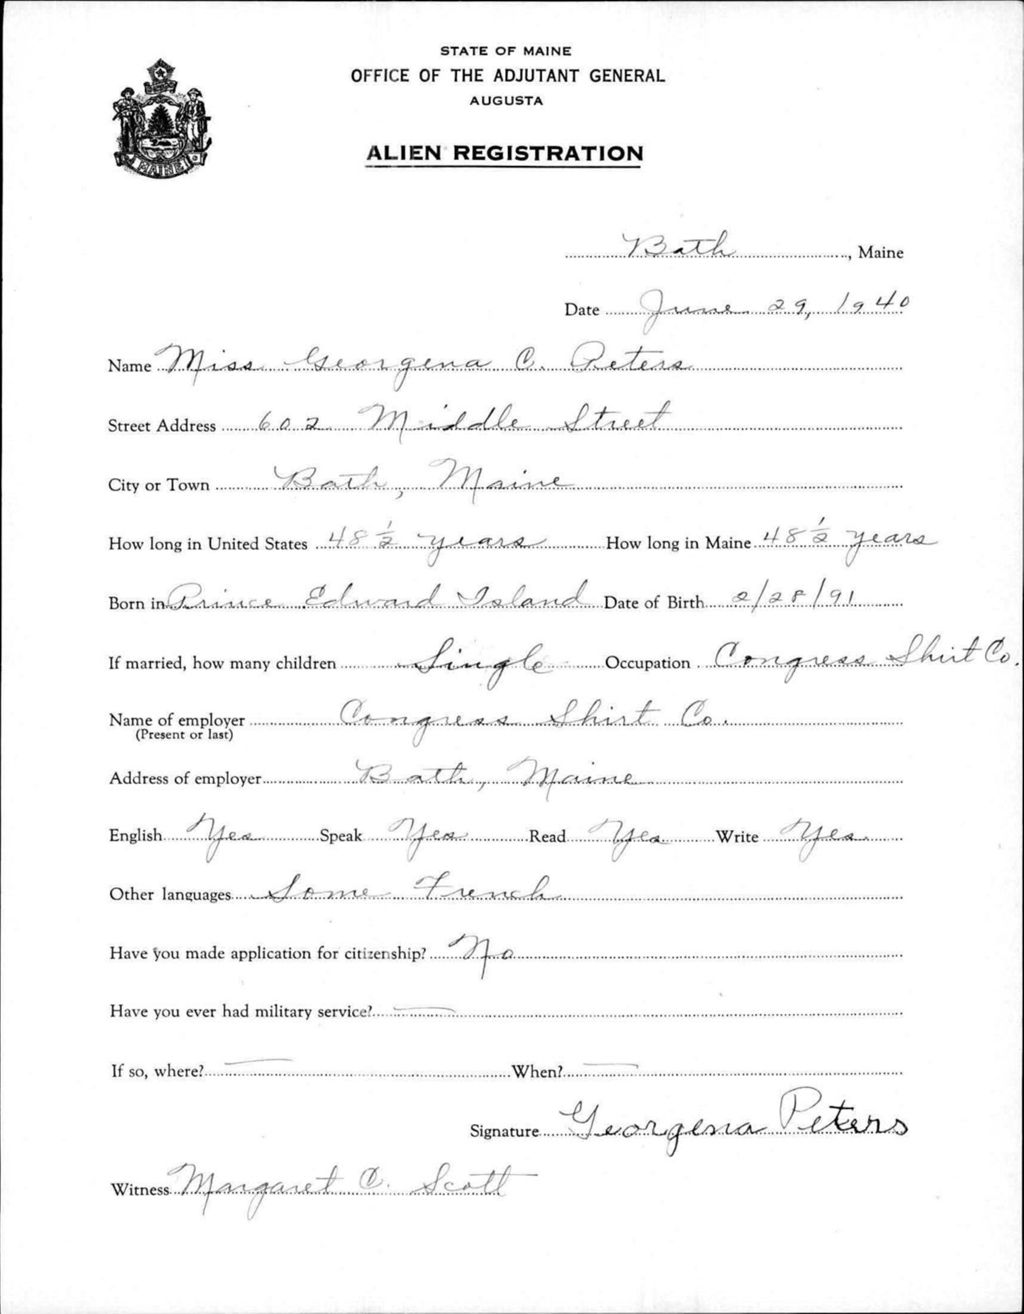 STATE OF MAINE
OFFICE OF THE ADJUTANT GENERAL
AUGUSTA
ALIEN REGISTRATION
MAINE
Bath, Maine
Date June 29, 1940
Name Miss Georgena C. Peters
Street Address 602 Middle Street
City or Town Bath, Maine
How long in United States 48 1/2 years How long in Maine 48 1/2 years
Born in Prince Edward Island Date of Birth 2/28/91
If married, how many children Single Occupation Congress Shirt Co.
Name of employer Congress Shirt Co.
(Present or last)
Address of employer Bath, Maine
English Yes Speak Yes Read Yes Write Yes
Other languages Some French
Have you made application for citizenship? No
Have you ever had military service? —
If so, where? — When? —
Signature Georgena Peters
Witness Margaret C. Scott